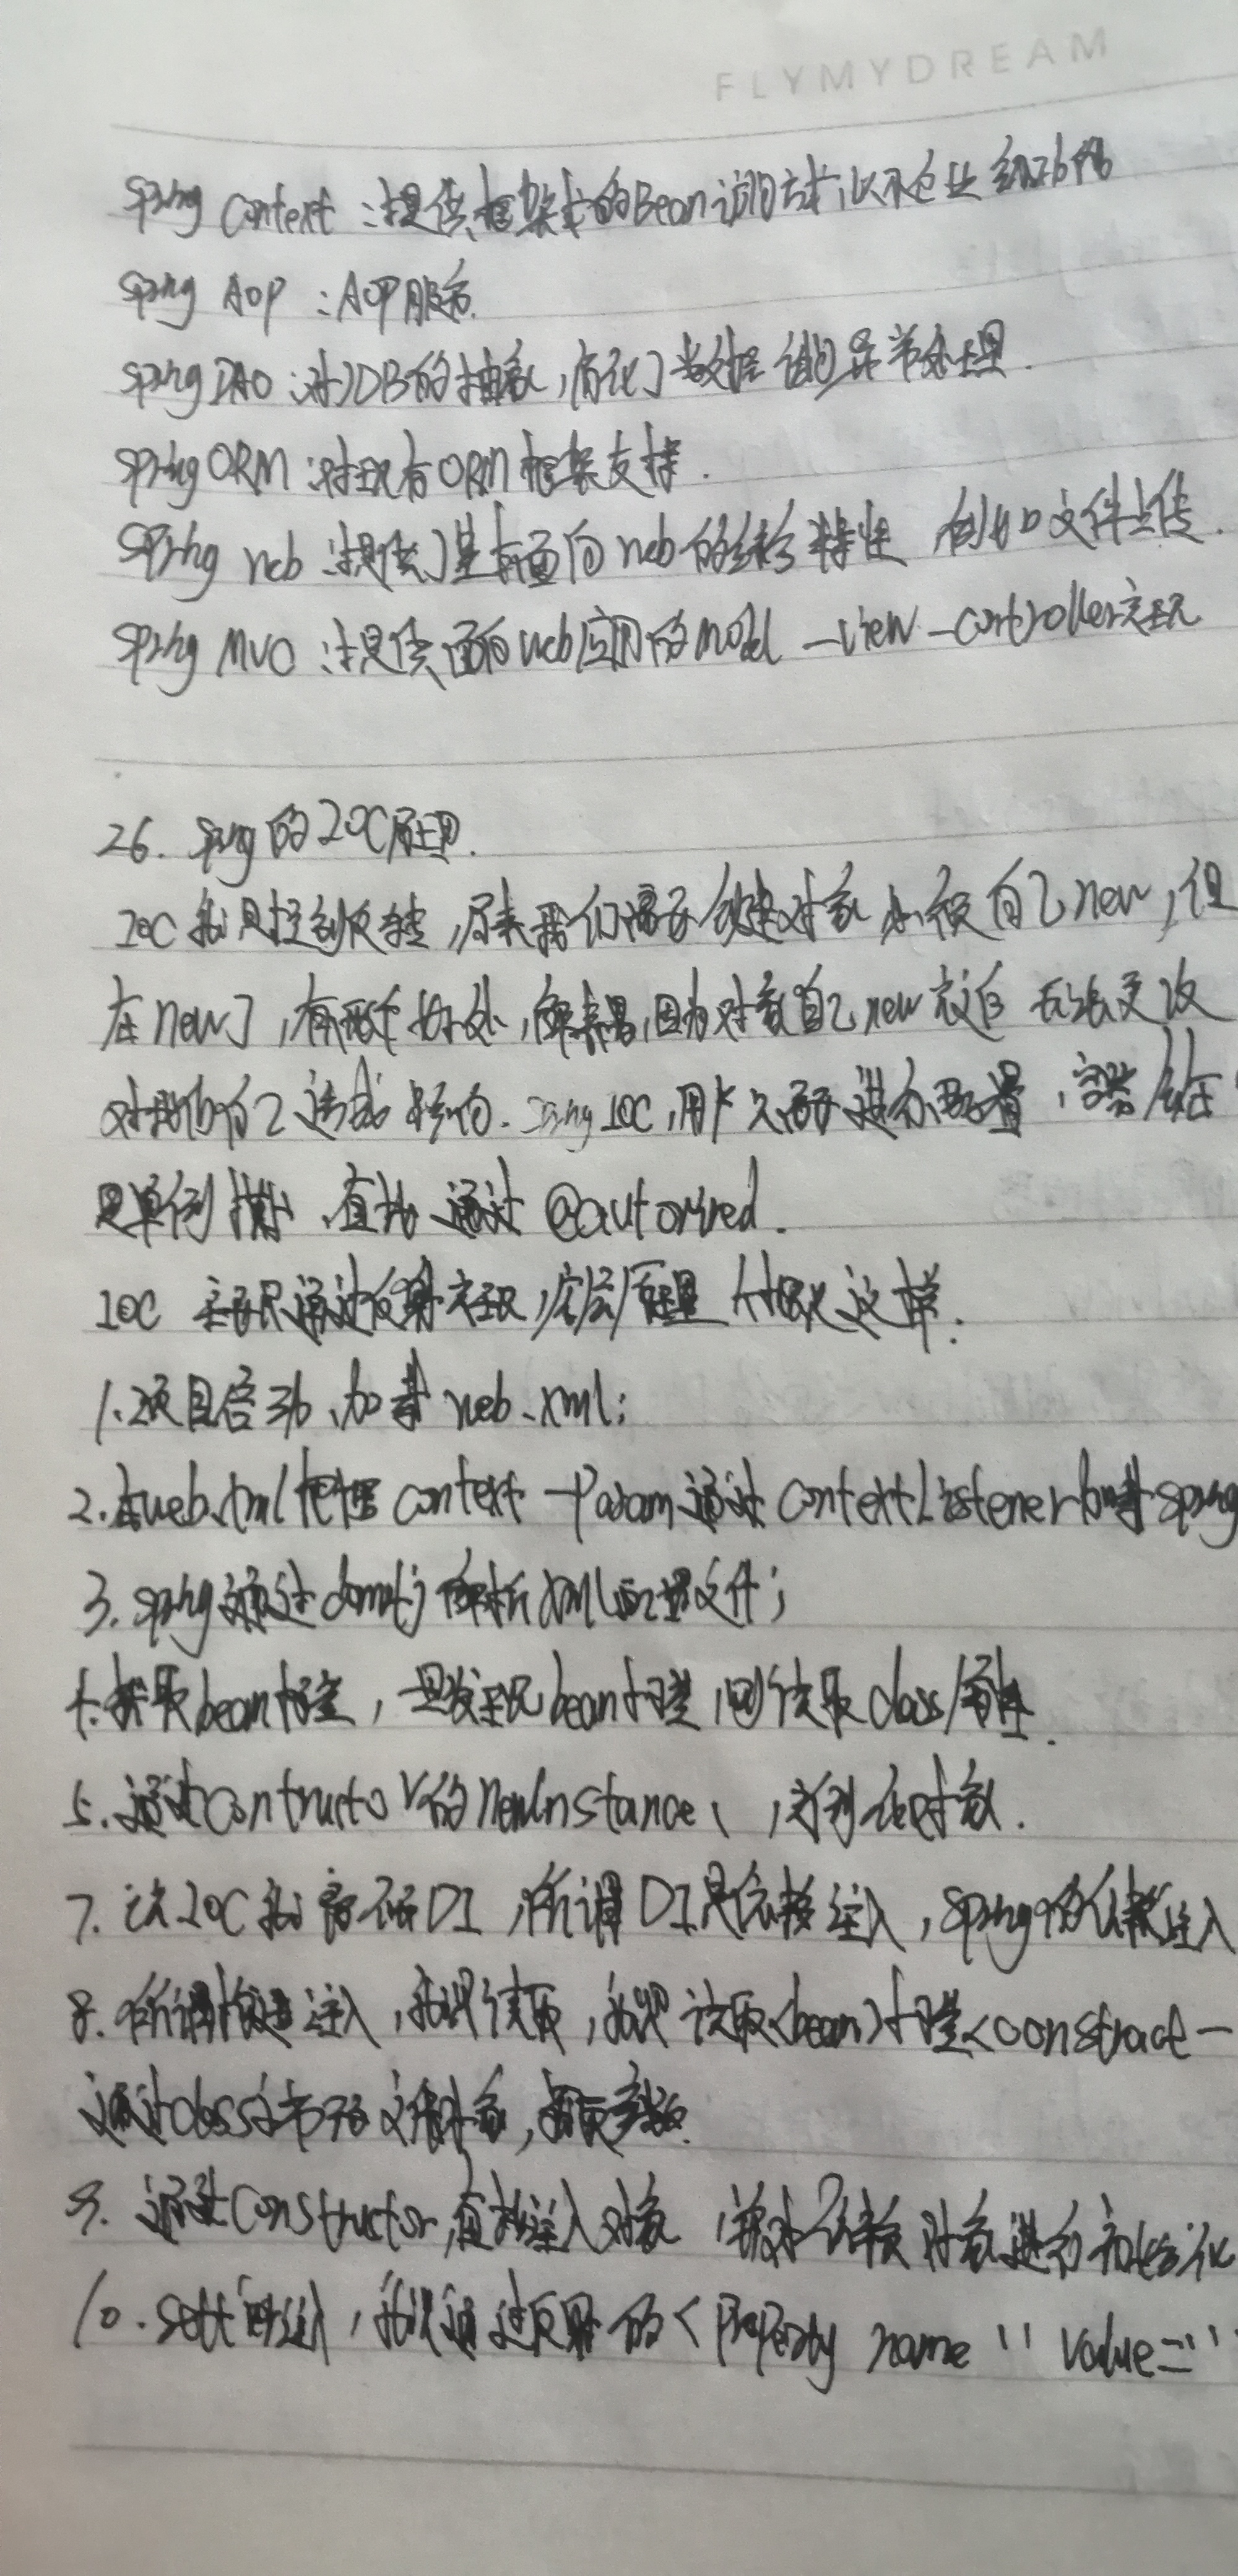 FLYMYDREAM
Spring Context :提供框架式的Bean访问方式,以及企业级功能
Spring AOP :AOP服务.
Spring DAO :对JDB的抽象,简化了数据访问异常处理.
Spring ORM :对现有ORM框架支持.
Spring web :提供了基本面向web的综合特性 例如文件上传.
Spring MVC :提供面向web应用的Model-view-Controller实现
26. Spring的IOC原理.
IOC 就是控制反转,原来我们需要创建对象 自己new,但
在new了,有 好处, 因为对象自己new之后 无法更改
对我们自己造成影响. Spring IOC,用户只需要进行配置,
是单例 ,直接通过 @autorired.
IOC 主要是通过反射实现,底层原理 大概这样.
1.项目启动,加载web.xml;
2.在web.xml 配置 context-Param通过ContextListener加载Spring
3. Spring通过dom4j解析XML配置文件;
4.获取bean标签,一旦发现bean标签,则读取class属性.
5.通过Contructor的newInstance(,实例化对象.
7. 说IOC就离不开DI,所谓DI是依赖注入,Spring的依赖注入
8.所谓构造注入,就是读取,就是读取<bean>标签<constract-
通过class 对象,获取参数.
9. 通过Constructor,直接注入对象,并对依赖对象进行初始化
10.sett 注入,就是通过反射的<Property name '' value=''